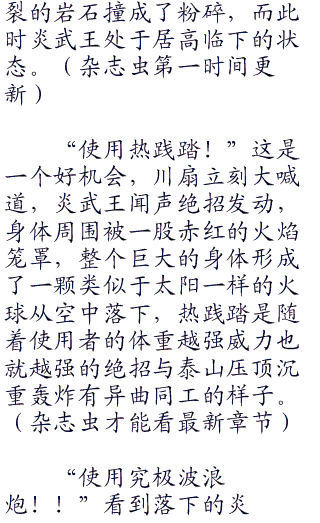 裂的岩石撞成了粉碎，而此
时炎武王处于居高临下的状
态。（杂志虫第一时间更
新）
“使用热践踏！”这是
一个好机会，川扇立刻大喊
道，炎武王闻声绝招发动，
身体周围被一股赤红的火焰
笼罩，整个巨大的身体形成
了一颗类似于太阳一样的火
球从空中落下，热践踏是随
着使用者的体重越强威力也
就越强的绝招与泰山压顶沉
重轰炸有异曲同工的样子。
（杂志虫才能看最新章节）
“使用究极波浪
炮！！”看到落下的炎